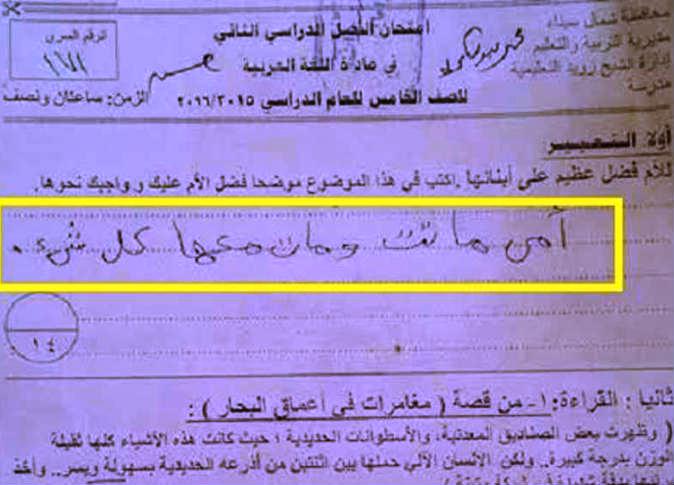 محافظة شمال سيناء
مديرية التربية والتعليم
إدارة الشيخ زويد التعليمية
مدرسة
امتحان الفصل الدراسي الثاني
في مادة اللغة العربية
للصف الخامس للعام الدراسي ٢٠١٦/٢٠١٥
الرقم السري
١١٧١
الزمن: ساعتان ونصف
أولا: التعبير
للأم فضل عظيم على أبنائها .اكتب في هذا الموضوع موضحا فضل الأم عليك وواجبك نحوها.
أمي ماتت ومات معها كل شيء .
١٤
ثانيا : القراءة: ١- من قصة ( مغامرات في أعماق البحار ) :
( وظهرت بعض الصناديق المعدنية، والأسطوانات الحديدية ؛ حيث كانت هذه الأشياء كلها ثقيلة
الوزن بدرجة كبيرة.. ولكن الإنسان الآلي حملها بين اثنتين من أذرعه الحديدية بسهولة ويسر.. وأخذ